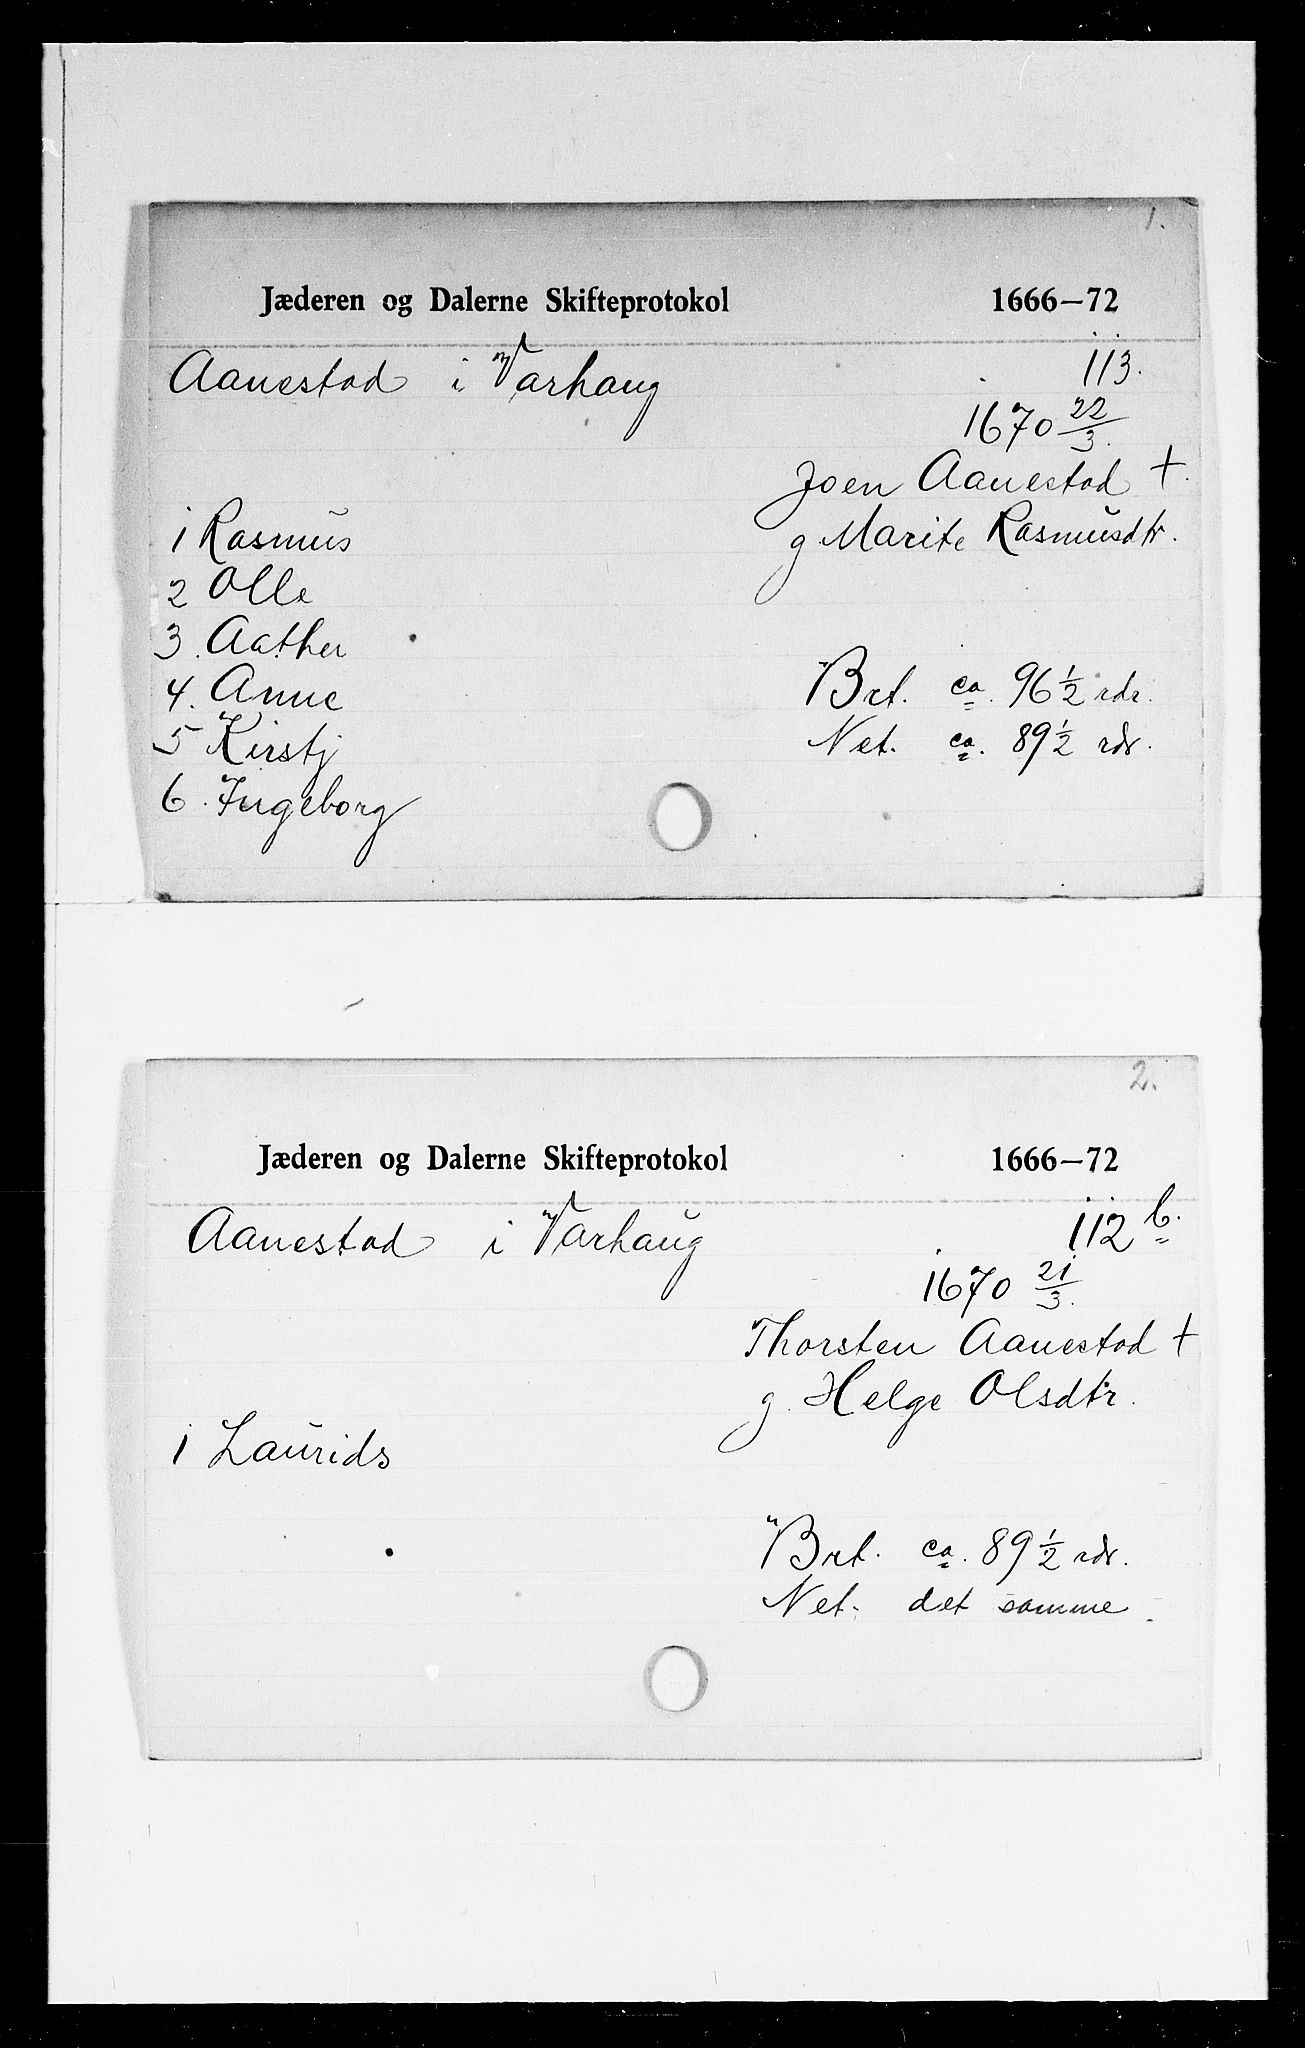 1.
Jæderen og Dalerne Skifteprotokol 1666–72
Aanestad i Varhaug 113.
1670 22/3.
Joen Aanestad †.
1 Rasmus g Marite Rasmusdtr.
2 Olle
3. Aather
4. Anne Brt. ca. 96 1/2 rdr.
5 Kirstj Net. ca. 89 1/2 rdr.
6. Ingeborg
2.
Jæderen og Dalerne Skifteprotokol 1666–72
Aanestad i Varhaug 112 b.
1670 21/3.
Thorsten Aanestad †
g. Helge Olsdtr.
1 Laurids
Brt. ca. 89 1/2 rdr.
Net. det samme.